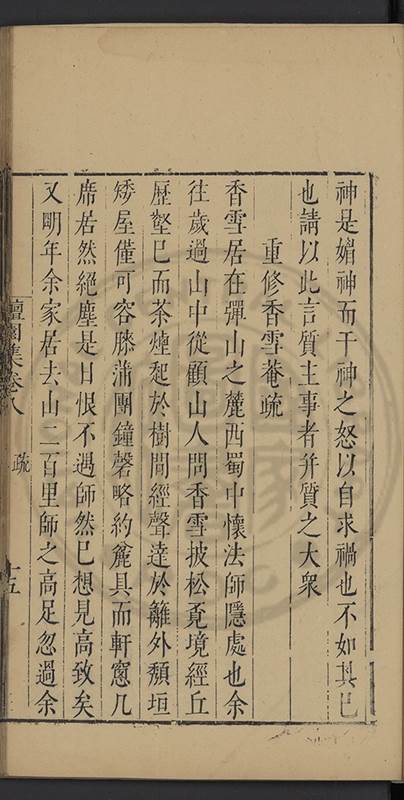 神是媚神而干神之怒以自求禍也不如其已
也請以此言質主事者并質之大衆
重修香雪菴疏
香雪居在彈山之麓西蜀中懷法師隱處也余
往歲過山中從顧山人問香雪披松覔境經丘
歷壑已而茶煙起於樹間經聲達於籬外頽垣
矮屋僅可容膝蒲團鐘磬略約麄具而軒窻几
席居然絕塵是日恨不遇師然已想見高致矣
又明年余家居去山二百里師之高足忽過余
檀園集卷八
疏
十五